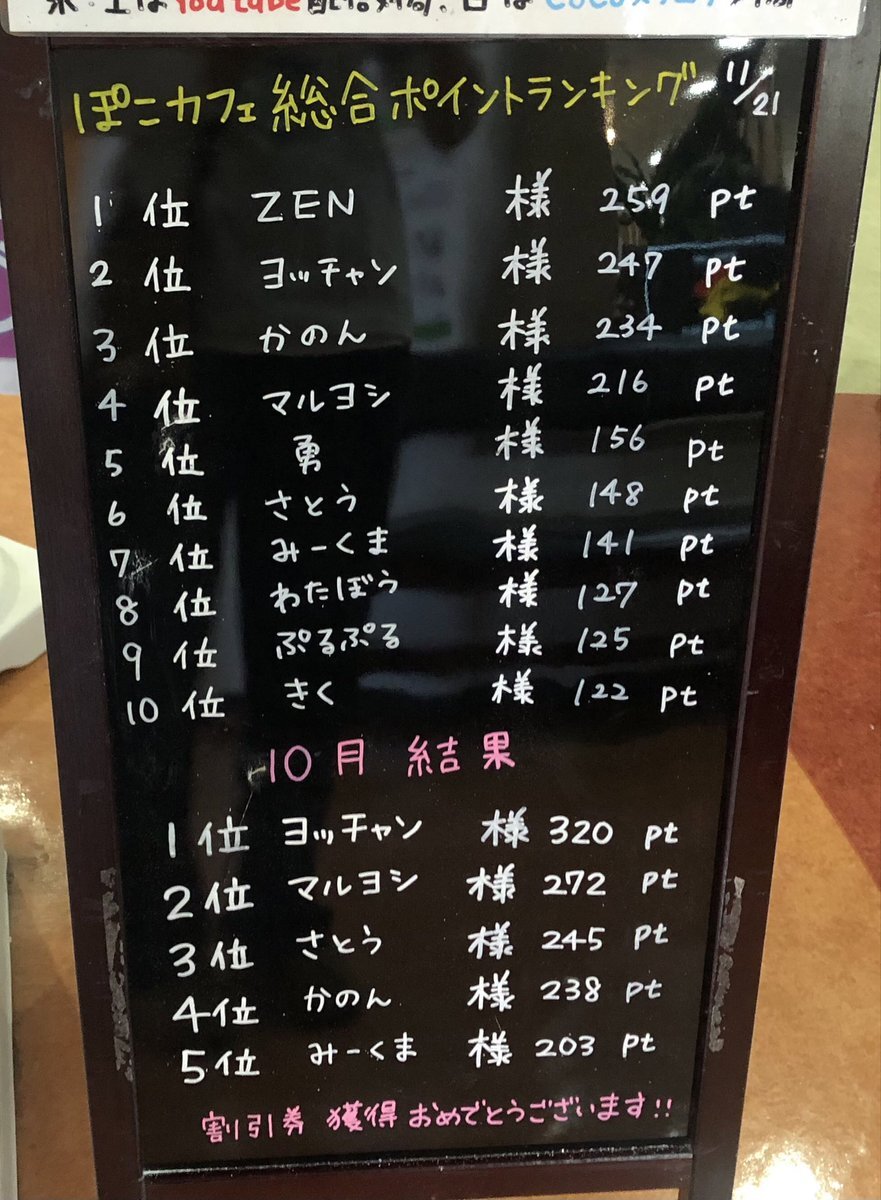 ぽこカフェ総合ポイントランキング 11/21
1位 ZEN 様 259 pt
2位 ヨッチャン 様 247 pt
3位 かのん 様 234 pt
4位 マルヨシ 様 216 pt
5位 勇 様 156 pt
6位 さとう 様 148 pt
7位 みーくま 様 141 pt
8位 わたぼう 様 127 pt
9位 ぷるぷる 様 125 pt
10位 きく 様 122 pt
10月 結果
1位 ヨッチャン 様 320 pt
2位 マルヨシ 様 272 pt
3位 さとう 様 245 pt
4位 かのん 様 238 pt
5位 みーくま 様 203 pt
割引券 獲得 おめでとうございます!!